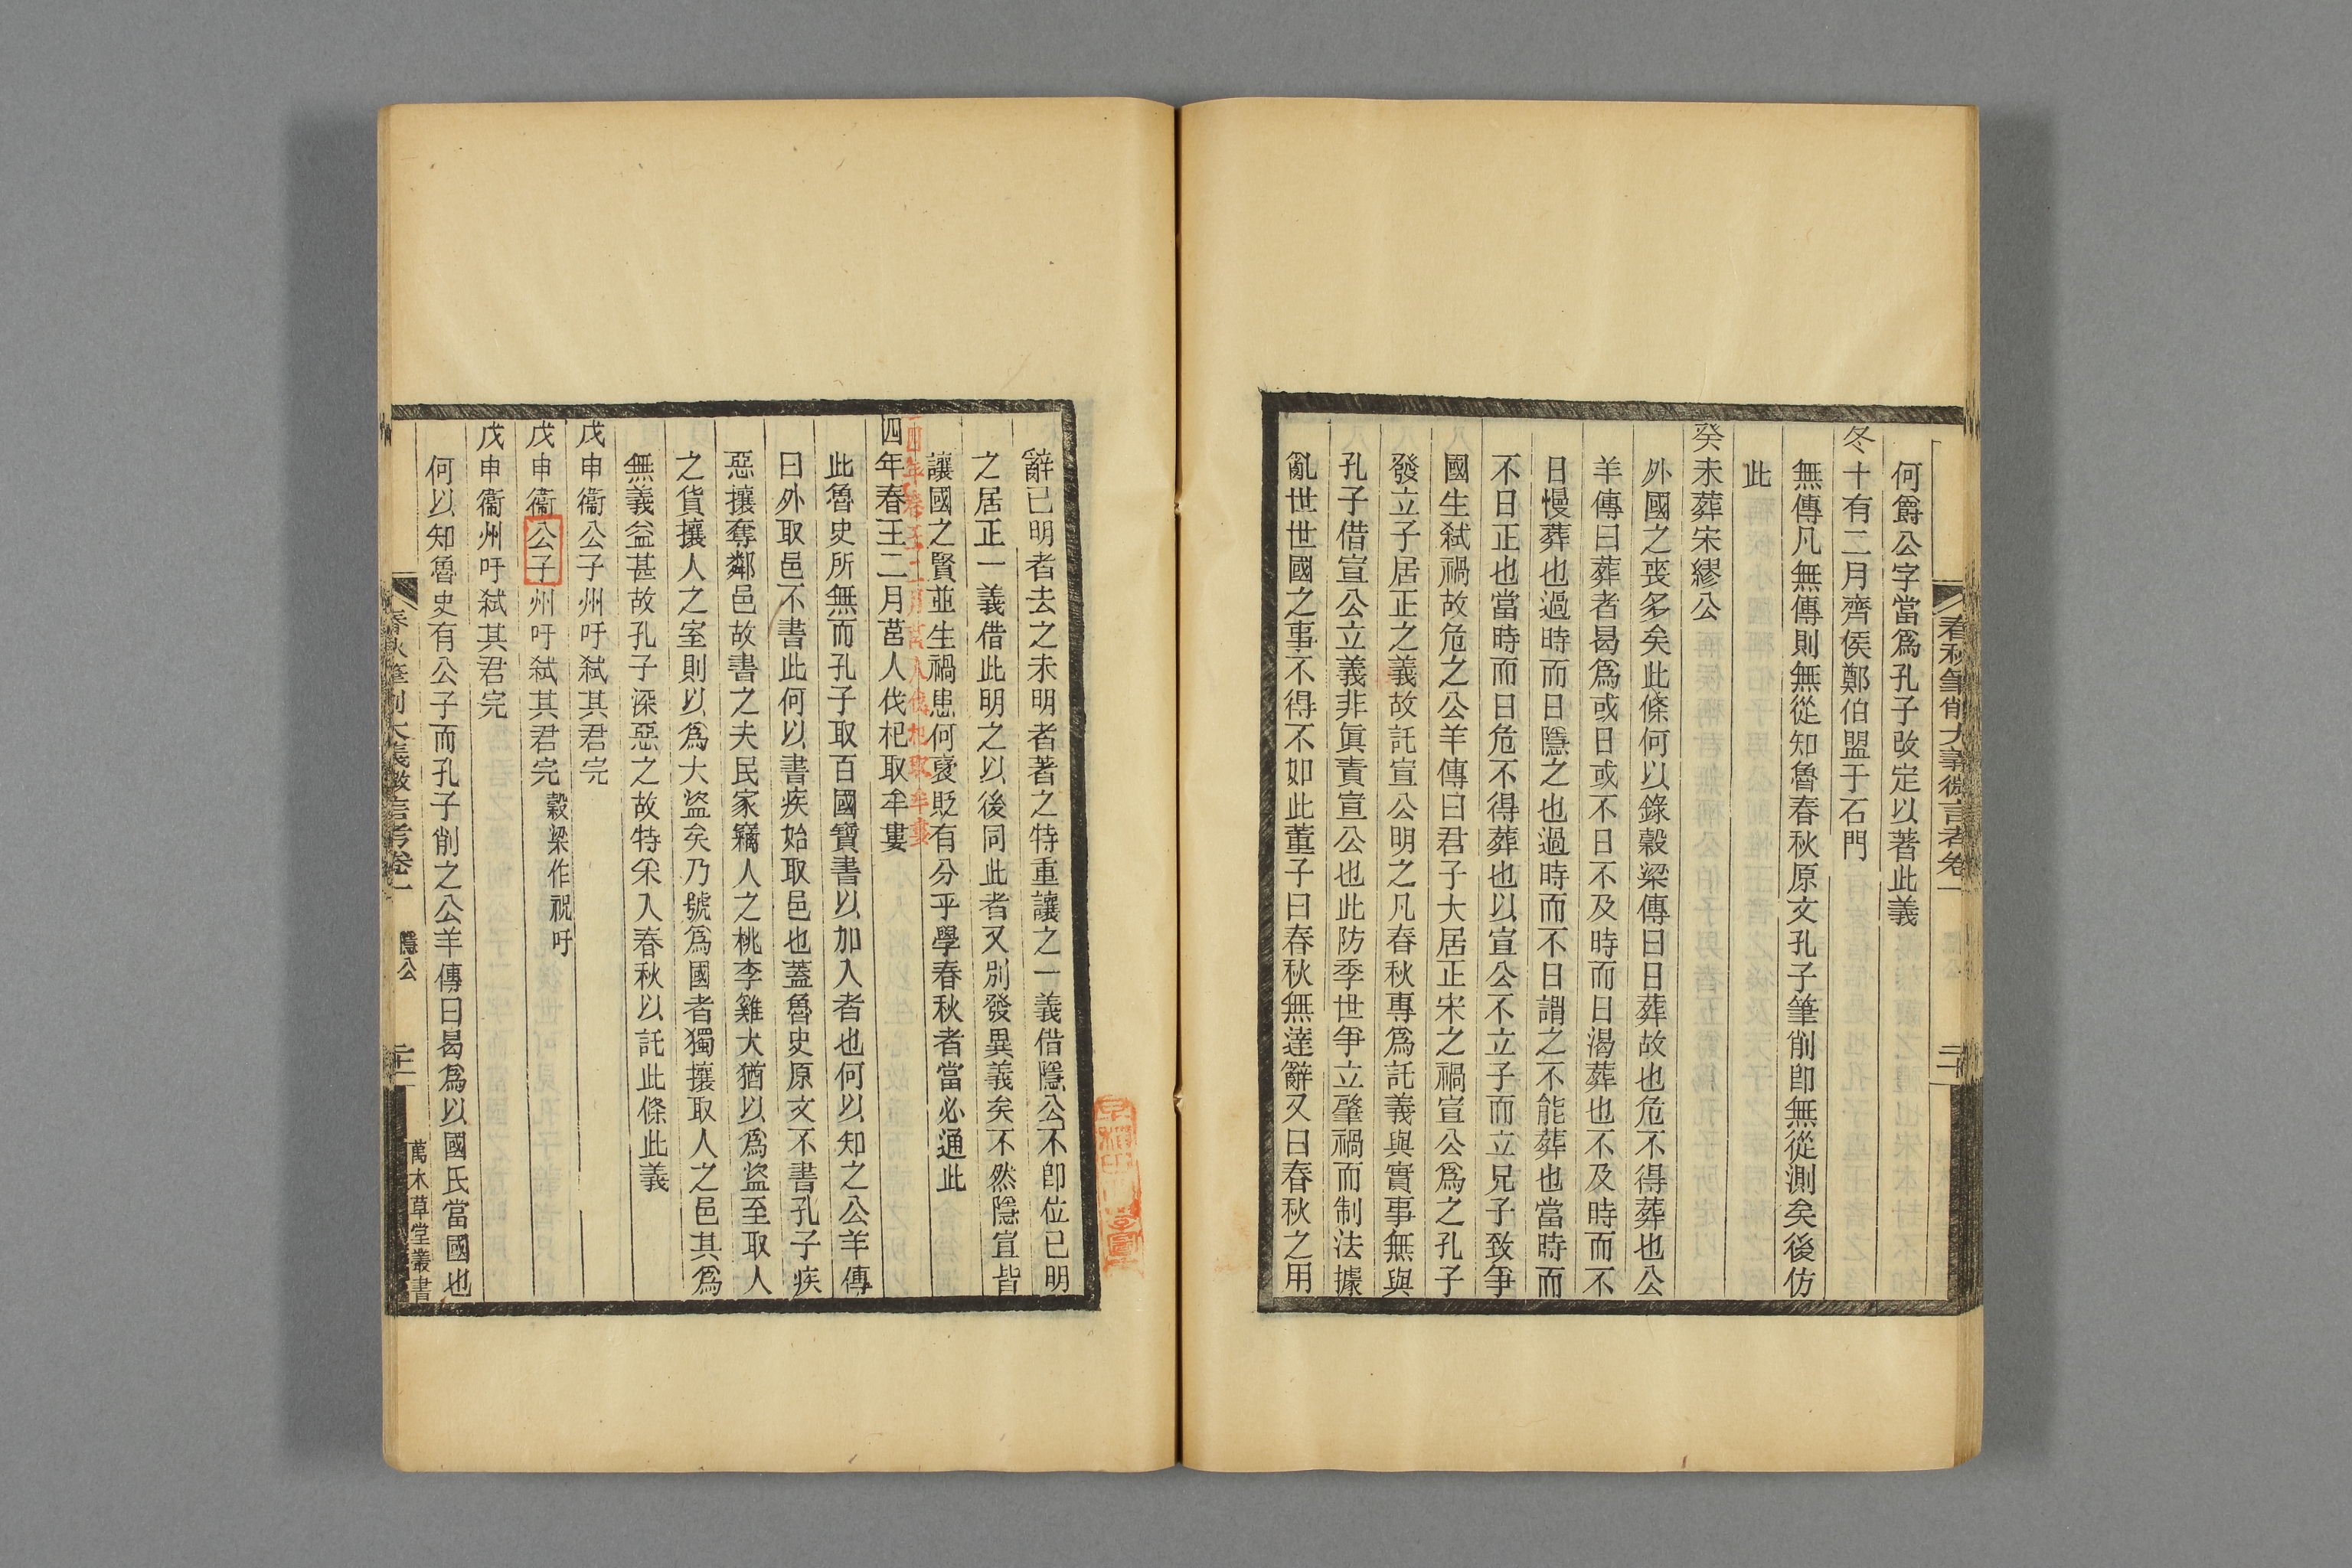 春秋筆削大義微言考卷一
二十
何爵公字當爲孔子改定以著此義
冬十有二月齊侯鄭伯盟于石門
無傳凡無傳則無從知魯春秋原文孔子筆削卽無從測矣後仿
此
癸未葬宋繆公
外國之喪多矣此條何以錄穀梁傳曰日葬故也危不得葬也公
羊傳曰葬者曷爲或日或不日不及時而日渴葬也不及時而不
日慢葬也過時而日隱之也過時而不日謂之不能葬也當時而
不日正也當時而日危不得葬也以宣公不立子而立兄子致爭
國生弑禍故危之公羊傳曰君子大居正宋之禍宣公爲之孔子
發立子居正之義故託宣公明之凡春秋專爲託義與實事無與
孔子借宣公立義非眞責宣公也此防季世爭立肇禍而制法據
亂世世國之事不得不如此董子曰春秋無達辭又曰春秋之用
辭已明者去之未明者著之特重讓之一義借隱公不卽位已明
之居正一義借此明之以後同此者又別發異義矣不然隱宣皆
讓國之賢並生禍患何襃貶有分乎學春秋者當必通此
四年春王二月莒人伐杞取牟婁
四年春王二月莒人伐杞取牟婁
此魯史所無而孔子取百國寶書以加入者也何以知之公羊傳
曰外取邑不書此何以書疾始取邑也蓋魯史原文不書孔子疾
惡攘奪鄰邑故書之夫民家竊人之桃李雞犬猶以爲盜至取人
之貨攘人之室則以爲大盜矣乃號爲國者獨攘取人之邑其爲
無義益甚故孔子深惡之故特采入春秋以託此條此義
戊申衞公子州吁弑其君完
戊申衞公子州吁弑其君完 穀梁作祝吁
戊申衞州吁弑其君完
何以知魯史有公子而孔子削之公羊傳曰曷爲以國氏當國也
春秋筆削大義微言考卷一 隱公
萬木草堂叢書